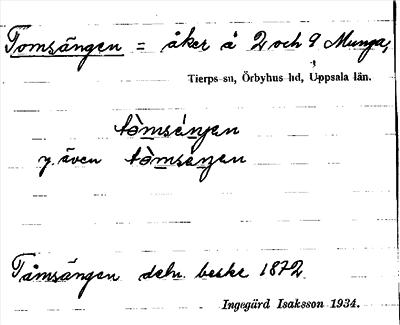 Tomsängen = åker å 2 och 9 Munga,
Tierps sn, Örbyhus hd, Uppsala län.
tòmsèŋen
y. även tòmsèŋen
Tåmsängen deln. beskr 1872
Ingegärd Isaksson 1934.